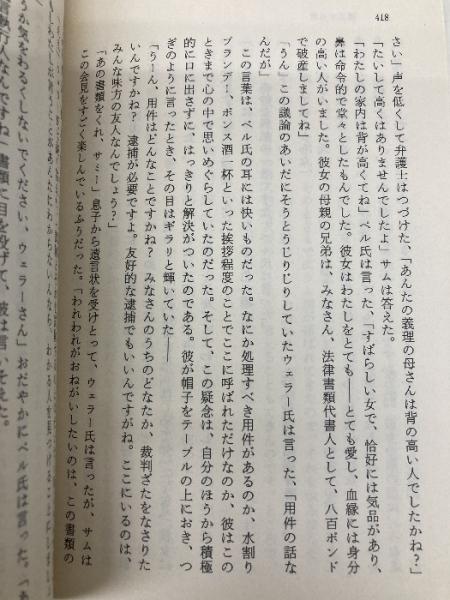 418
さい」声を低くして弁護士はつづけた、「あんたの義理の母さんは背の高い人でしたかね？」
「たいして高くはありませんでしたよ」サムは答えた。
「わたしの家内は背が高くてね」ペル氏は言った、「すばらしい女で、恰好には気品があり、
鼻は命令的で堂々としたもんでした。彼女はわたしをとても――とても愛し、血縁には身分
の高い人がいました。彼女の母親の兄弟は、みなさん、法律書類代書人として、八百ポンド
で破産しましてね」
「うん」この議論のあいだにそうとうじりじりしていたウェラー氏は言った、「用件の話な
んだが」
この言葉は、ペル氏の耳には快いものだった。なにか処理すべき用件があるのか、水割り
ブランデー、ポンス酒一杯といった挨拶程度のことでここに呼ばれただけなのか、彼はこの
ときまで心の中で思いめぐらしていたのだった。そして、この疑念は、自分のほうから積極
的に口に出さずに、はっきりと解決がついたのである。彼が帽子をテーブルの上におき、つ
ぎのように言ったとき、その目はギラリと輝いていた――
「うーん、用件はどんなことですかね？　みなさんのうちのどなたか、裁判ざたをなさりた
いんですかね？　逮捕が必要ですよ。友好的な逮捕でもいいんですがね。ここにいるのは、
みんな味方の友人なんでしょう？」
「あの書類をくれ、サミー」息子から遺言状を受けとって、ウェラー氏は言ったが、サムは
この会見をすごく楽しんでいるふうだった。「われわれがおねがいしたいのは、この書類の
うか気をわるくしないでください、ウェラーさん」おだやかにペル氏は言った。
書類に目を投げて、彼は言いそえた。